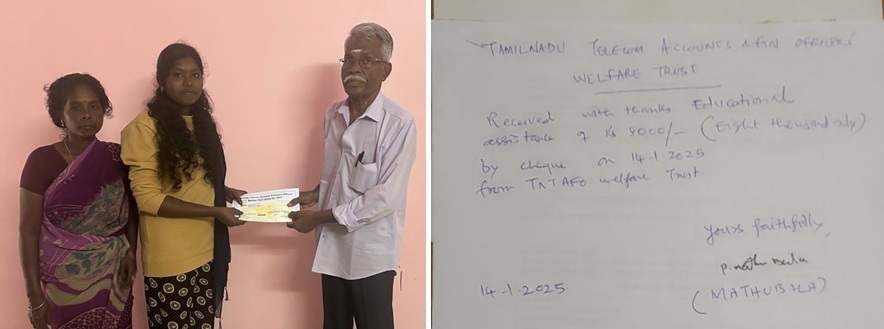 TAMILNADU TELECOM ACCOUNTS & FIN OFFICERS'
WELFARE TRUST
Received with thanks Educational
assistance of Rs 8000/- (Eight thousand only)
by cheque on 14.1.2025
from TNTAFO welfare Trust
Yours faithfully,
14.1.2025
(MATHUBALA)